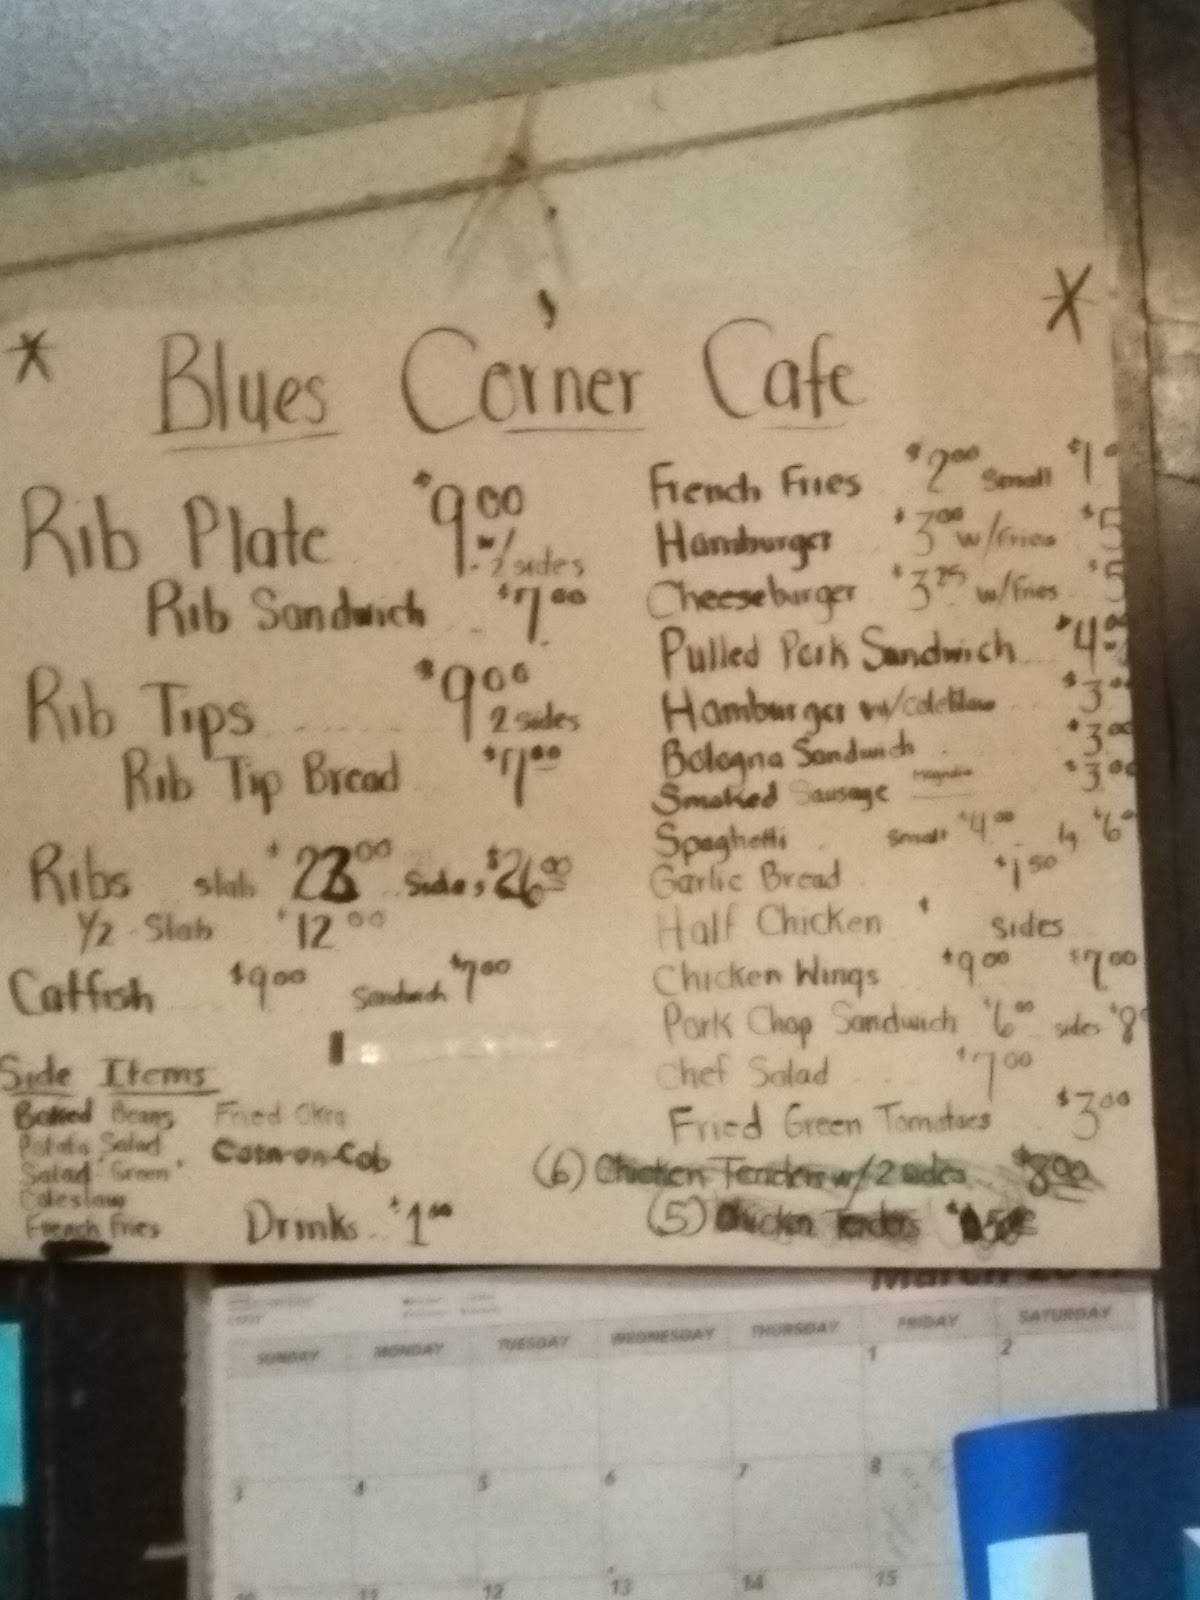 * Blues Corner Cafe *
Rib Plate $9.00 w/ 2 sides
Rib Sandwich $7.00
Rib Tips ...... $9.00 2 sides
Rib Tip Bread $7.00
Ribs slab $23.00 sides $26.00
1/2 Slab $12.00
Catfish $9.00 Sandwich $7.00
Side Items
Baked Beans Fried Okra
Potato Salad Corn-on-Cob
Salad "Green"
Coleslaw
French Fries
Drinks .. $1.00
French Fries $2.00 Small $1
Hamburger $3.00 w/fries $5
Cheeseburger $3.25 w/fries $5
Pulled Pork Sandwich ... $4.00
Hamburger w/coleslaw $3.00
Bologna Sandwich $3.00
Smoked Sausage Magnolia $3.00
Spaghetti Small $4.00 lg $6
Garlic Bread $1.50
Half Chicken $ sides
Chicken Wings $9.00 $7.00
Pork Chop Sandwich $6.00 sides $8
Chef Salad $7.00
Fried Green Tomatoes $3.00
(6) Chicken Tenders w/2 sides $8.00
(5) Chicken Tenders
March
SUNDAY MONDAY TUESDAY WEDNESDAY THURSDAY FRIDAY SATURDAY
1 2
3 4 5 6 7 8
10 11 12 13 14 15